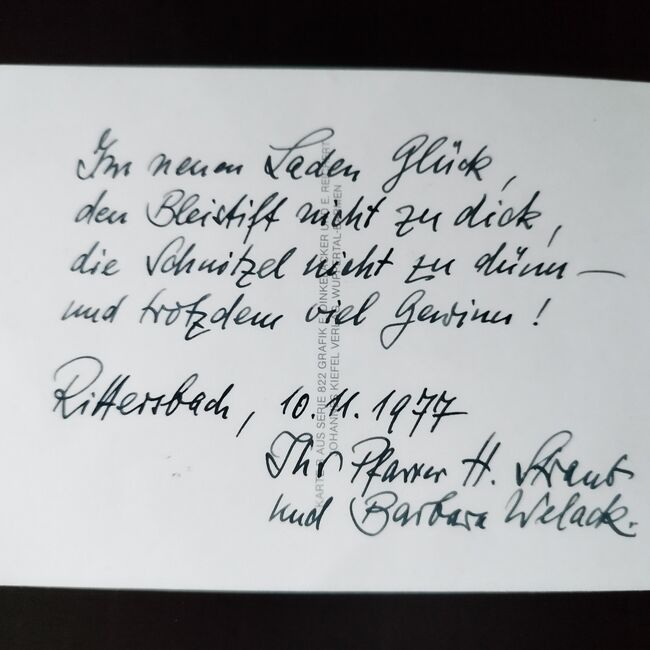 Im neuen Laden Glück,
den Bleistift nicht zu dick,
die Schnitzel nicht zu dünn —
und trotzdem viel Gewinn!
Rittersbach, 10.11.1977
Ihr Pfarrer H. Straub
und Barbara Welack.
KARTE AUS SERIE 822 GRAFIK
JOHANNES KIEFEL VERLAG, WUPPERTAL-BARMEN